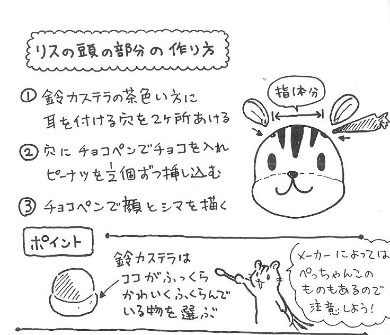 リスの頭の部分の作り方
① 鈴カステラの茶色い方に
耳を付ける穴を2ヶ所あける
② 穴にチョコペンでチョコを入れ
ピーナツを½個ずつ挿し込む
③ チョコペンで顔とシマを描く
指1本分
ポイント
鈴カステラは
ココがふっくら
かわいくふくらんで
いる物を選ぶ
メーカーによっては
ぺっちゃんこの
ものもあるので
注意しよう!